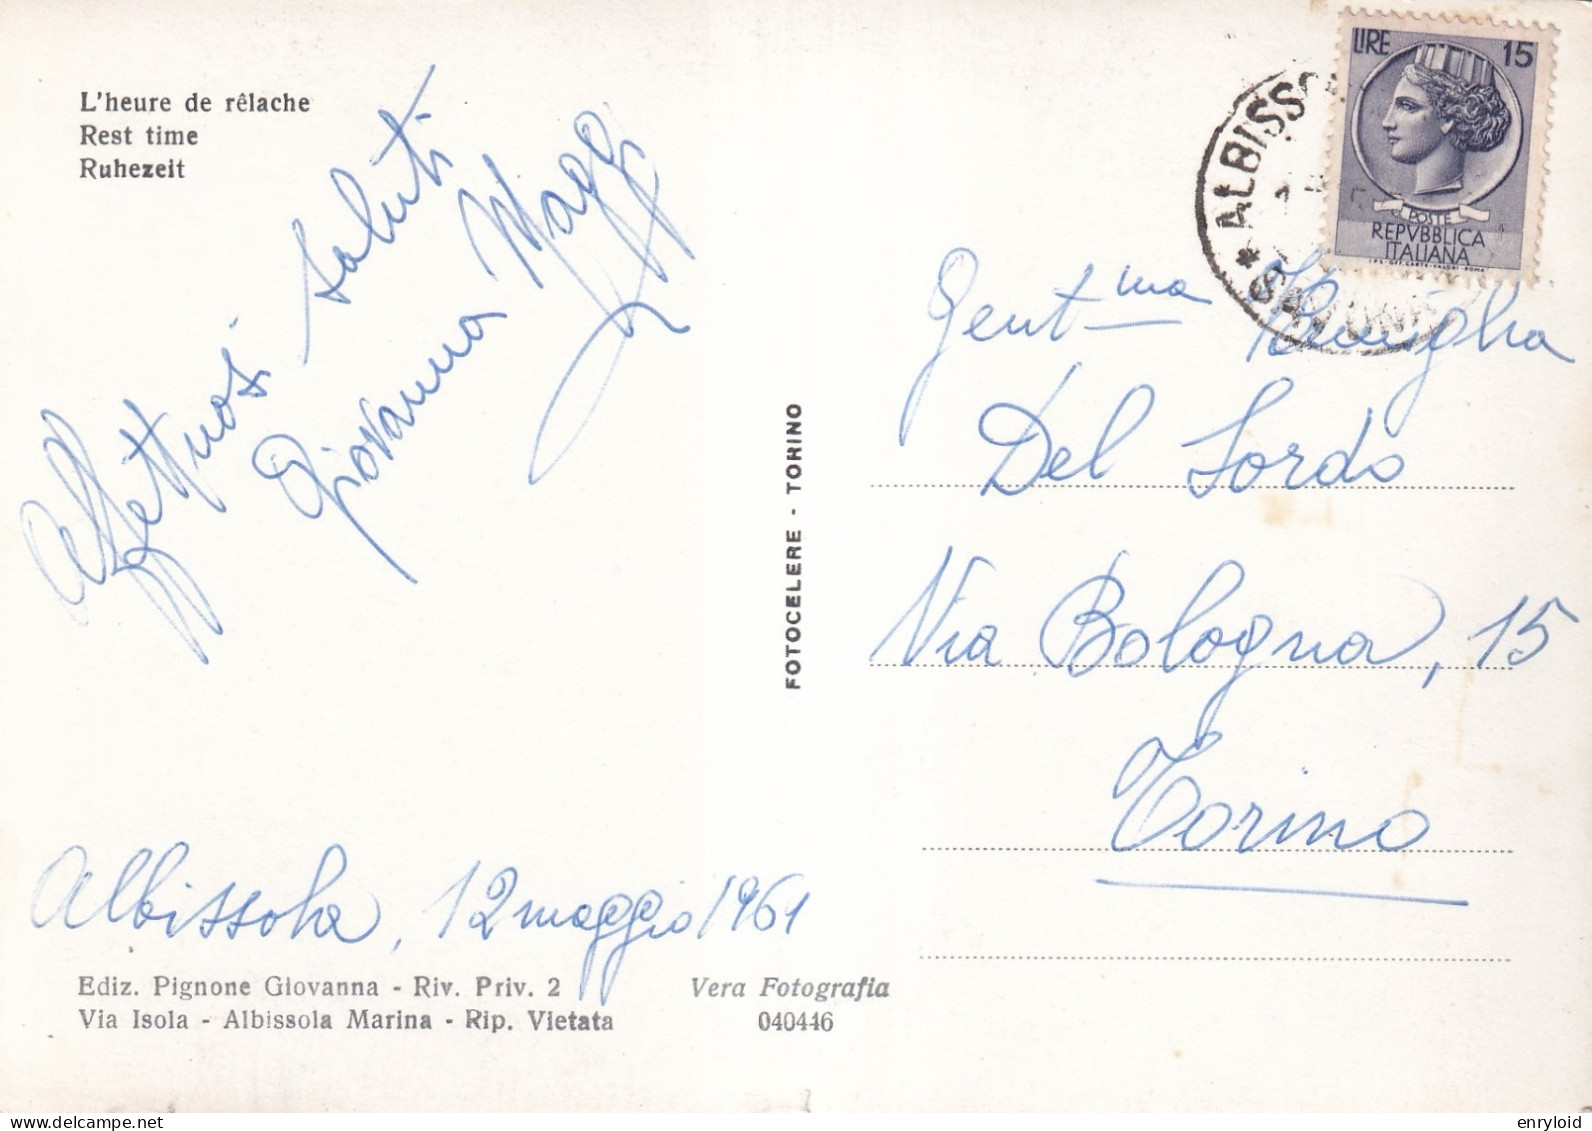 L'heure de rêlache
Rest time
Ruhezeit
Affettuosi saluti
Giovanna Maggi
Albissola, 12 maggio 1961
Ediz. Pignone Giovanna - Riv. Priv. 2
Via Isola - Albissola Marina - Rip. Vietata
Vera Fotografia
040446
FOTOCELERE - TORINO
LIRE 15
POSTE
REPVBBLICA
ITALIANA
I.P.S. OFF. CARTE-VALORI - ROMA
* ALBISSO
SAVONA
Gent.ma Famiglia
Del Sordo
Via Bologna, 15
Torino
enryloid